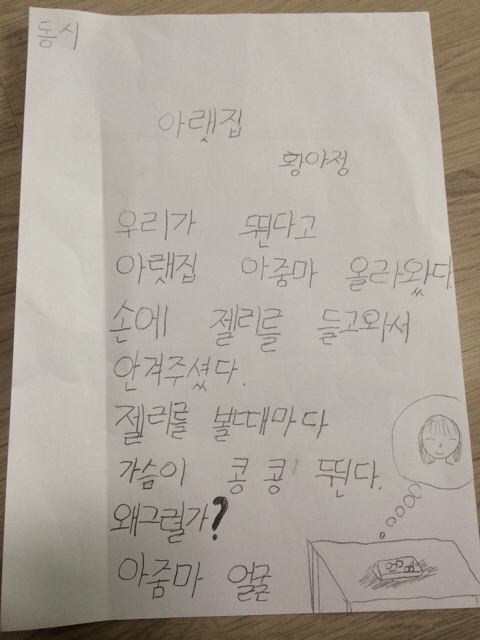 동시
아랫집
황야정
우리가 뛴다고
아랫집 아줌마 올라왔다
손에 젤리를 들고와서
안겨주셨다.
젤리를 볼때마다
가슴이 콩콩 뛴다.
왜그럴가?
아줌마 얼굴